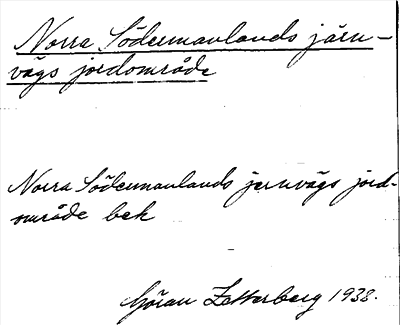 Norra Södermanlands järn-
vägs jordområde
Norra Södermanlands jernvägs jord-
område bek
Göran Zetterberg 1938.